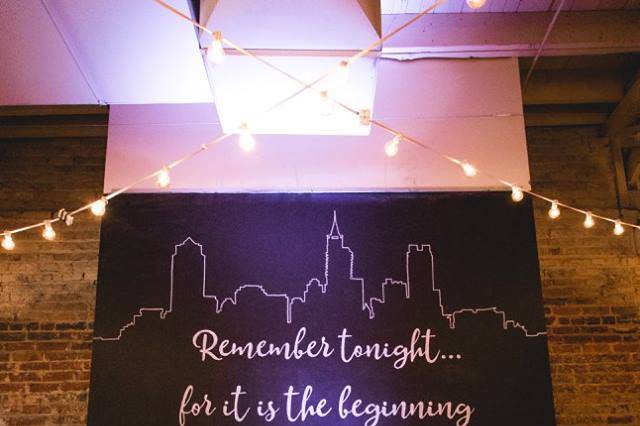 Remember tonight...
for it is the beginning